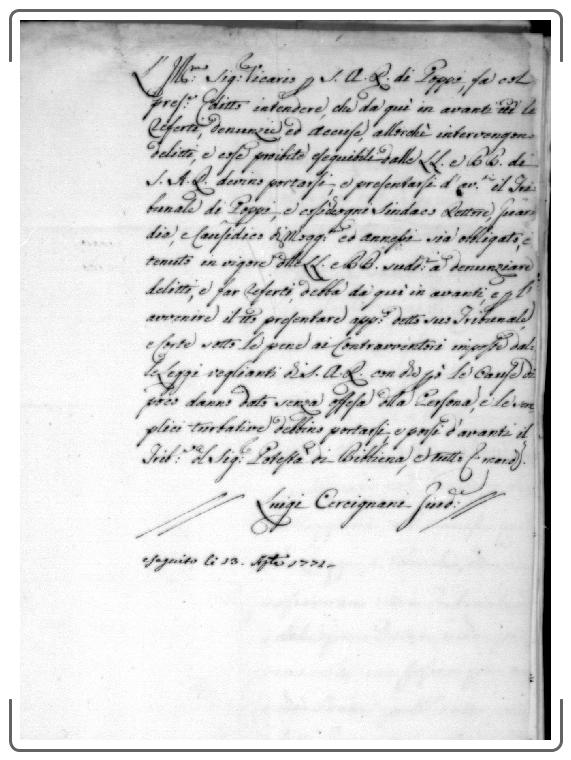 L' Ill.mo Sig.r Vicario p S. A. R. di Poppi, fa col
pres.te ditto intendere, che da quì in avanti tt.i le
referti, denunzie ed accuse, allorchè intervengono
delitti, e cose proibite eseguibili dalle LL. e BB. di
S. A. R. devino portarsi, e presentarsi d'av.ti il Tri=
bunale di Poppi, e ess. ogni Sindaco Rettore, Guar
dia, e Causidico di Mogg.a ed annessi sia obbligato, e
tenuto in vigore dlle LL. e BB. sudd.e a denunziare
delitti, e far referti, debba da quì in avanti, e p l'
avvenire il tto presentare app.o detto suo Tribunale,
e Corte sotto le pene ai Contravventori imposte dal=
le Leggi veglianti di S. A. R. con dic. però le Cause di
poco danno dato senza offesa dlla Persona, e le sem
plici turbative debbino portarsi, e pors. d'avanti il
Trib.le dl Sig.r Potestà di Bibbiena, e tutto
Luigi Cercignani Giud.e
eseguito li 13. Aple 1771.